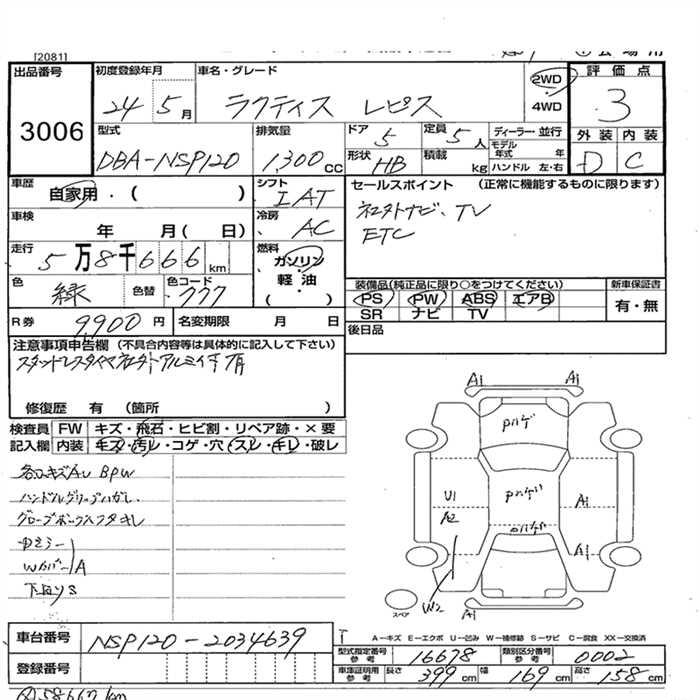 [2081]
出品番号
3006
初度登録年月
24 5月
車名・グレード
ラクティス レピス
2WD
4WD
評価点
3
型式
DBA-NSP120
排気量
1,300cc
ドア
5
定員
5人
形状
HB
積載
kg
ディーラー・並行
モデル年式 年
ハンドル 左・右
外装 内装
D C
車歴
自家用・( )
シフト
IAT
セールスポイント (正常に機能するものに限ります)
社外ナビ、TV
ETC
車検
年 月( 日)
冷房
AC
走行
5万8千666km
燃料
ガソリン
軽油
( )
色
緑
色替
色コード
777
装備品(純正品に限り○をつけてください)
PS PW ABS エアB
SR ナビ TV
新車保証書
有・無
R券
9,900円
名変期限 月 日
後日品
注意事項申告欄 (不具合内容等は具体的に記入して下さい)
スタッドレスタイヤ社外アルミ 有
修復歴 有 (箇所 )
検査員記入欄
FW キズ・飛石・ヒビ割・リペア跡・×要
内装 キズ・汚レ・コゲ・穴・スレ・キレ・破レ
各所キズAU BPW
ハンドルグリップハガレ
グローブボックスフタキレ
A1 A1
Pハゲ
U1
A2
Pハゲ
A1
Pハゲ
A1
W2
A1
スペア
A-キズ E-エクボ U-凹み W-補修跡 S-サビ C-腐食 XX-交換済
車台番号
NSP120-2034639
型式指定番号 参考
16678
類別区分番号 参考
0002
登録番号
車体寸法 参考
長さ 399cm 幅 169cm 高さ 158cm
58667km